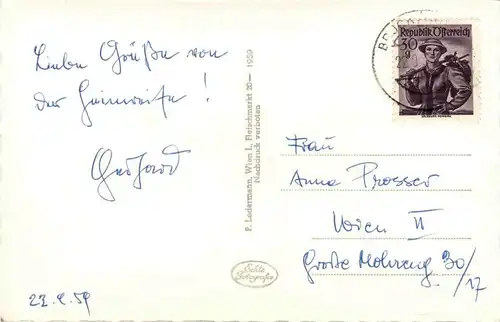 Liebe Grüße von
der Heimreise!
Gerhard
22. 2. 59
P. Ledermann, Wien I., Fleischmarkt 20 — 1959
Nachdruck verboten
Echte
Fotografie
Republik Österreich
30
g
Frau
Anna Prosser
Wien II
Große Mohreng 30/
17